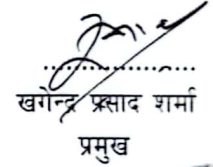 खगेन्द्र प्रसाद शर्मा
प्रमुख